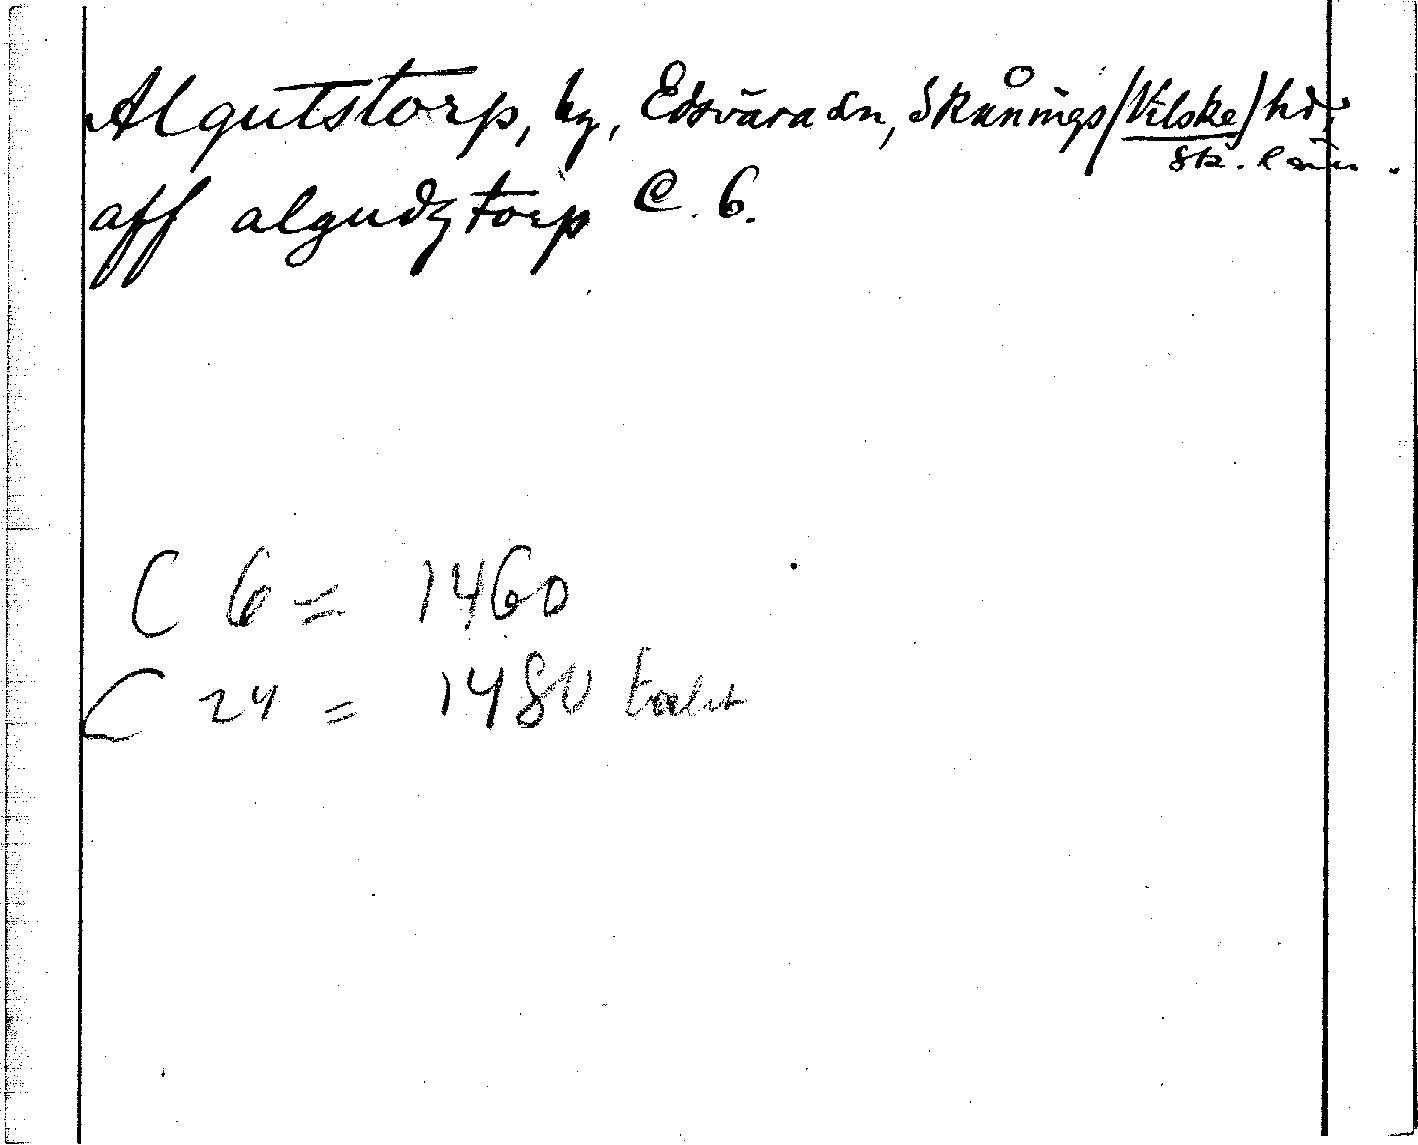 Algutstorp, by, Edsvära sn, Skånings/Vilske/hd,
Sk. län.
aff algudztorp C. 6.
C 6 = 1460
C 24 = 1480 talet